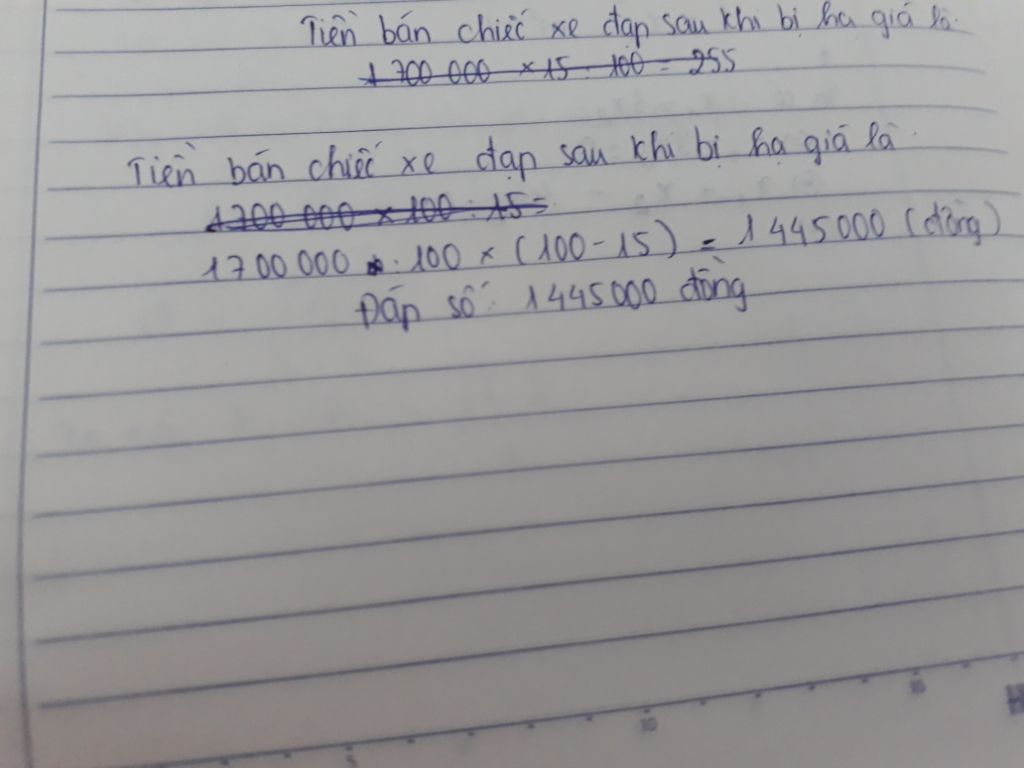 Tiền bán chiếc xe đạp sau khi bị hạ giá là.
1 700 000 × 15 : 100 = 255
Tiền bán chiếc xe đạp sau khi bị hạ giá là.
1700 000 × 100 : 15 =
1700 000 : 100 × (100 - 15) = 1 445 000 (đồng)
Đáp số: 1445000 đồng
5
10
15